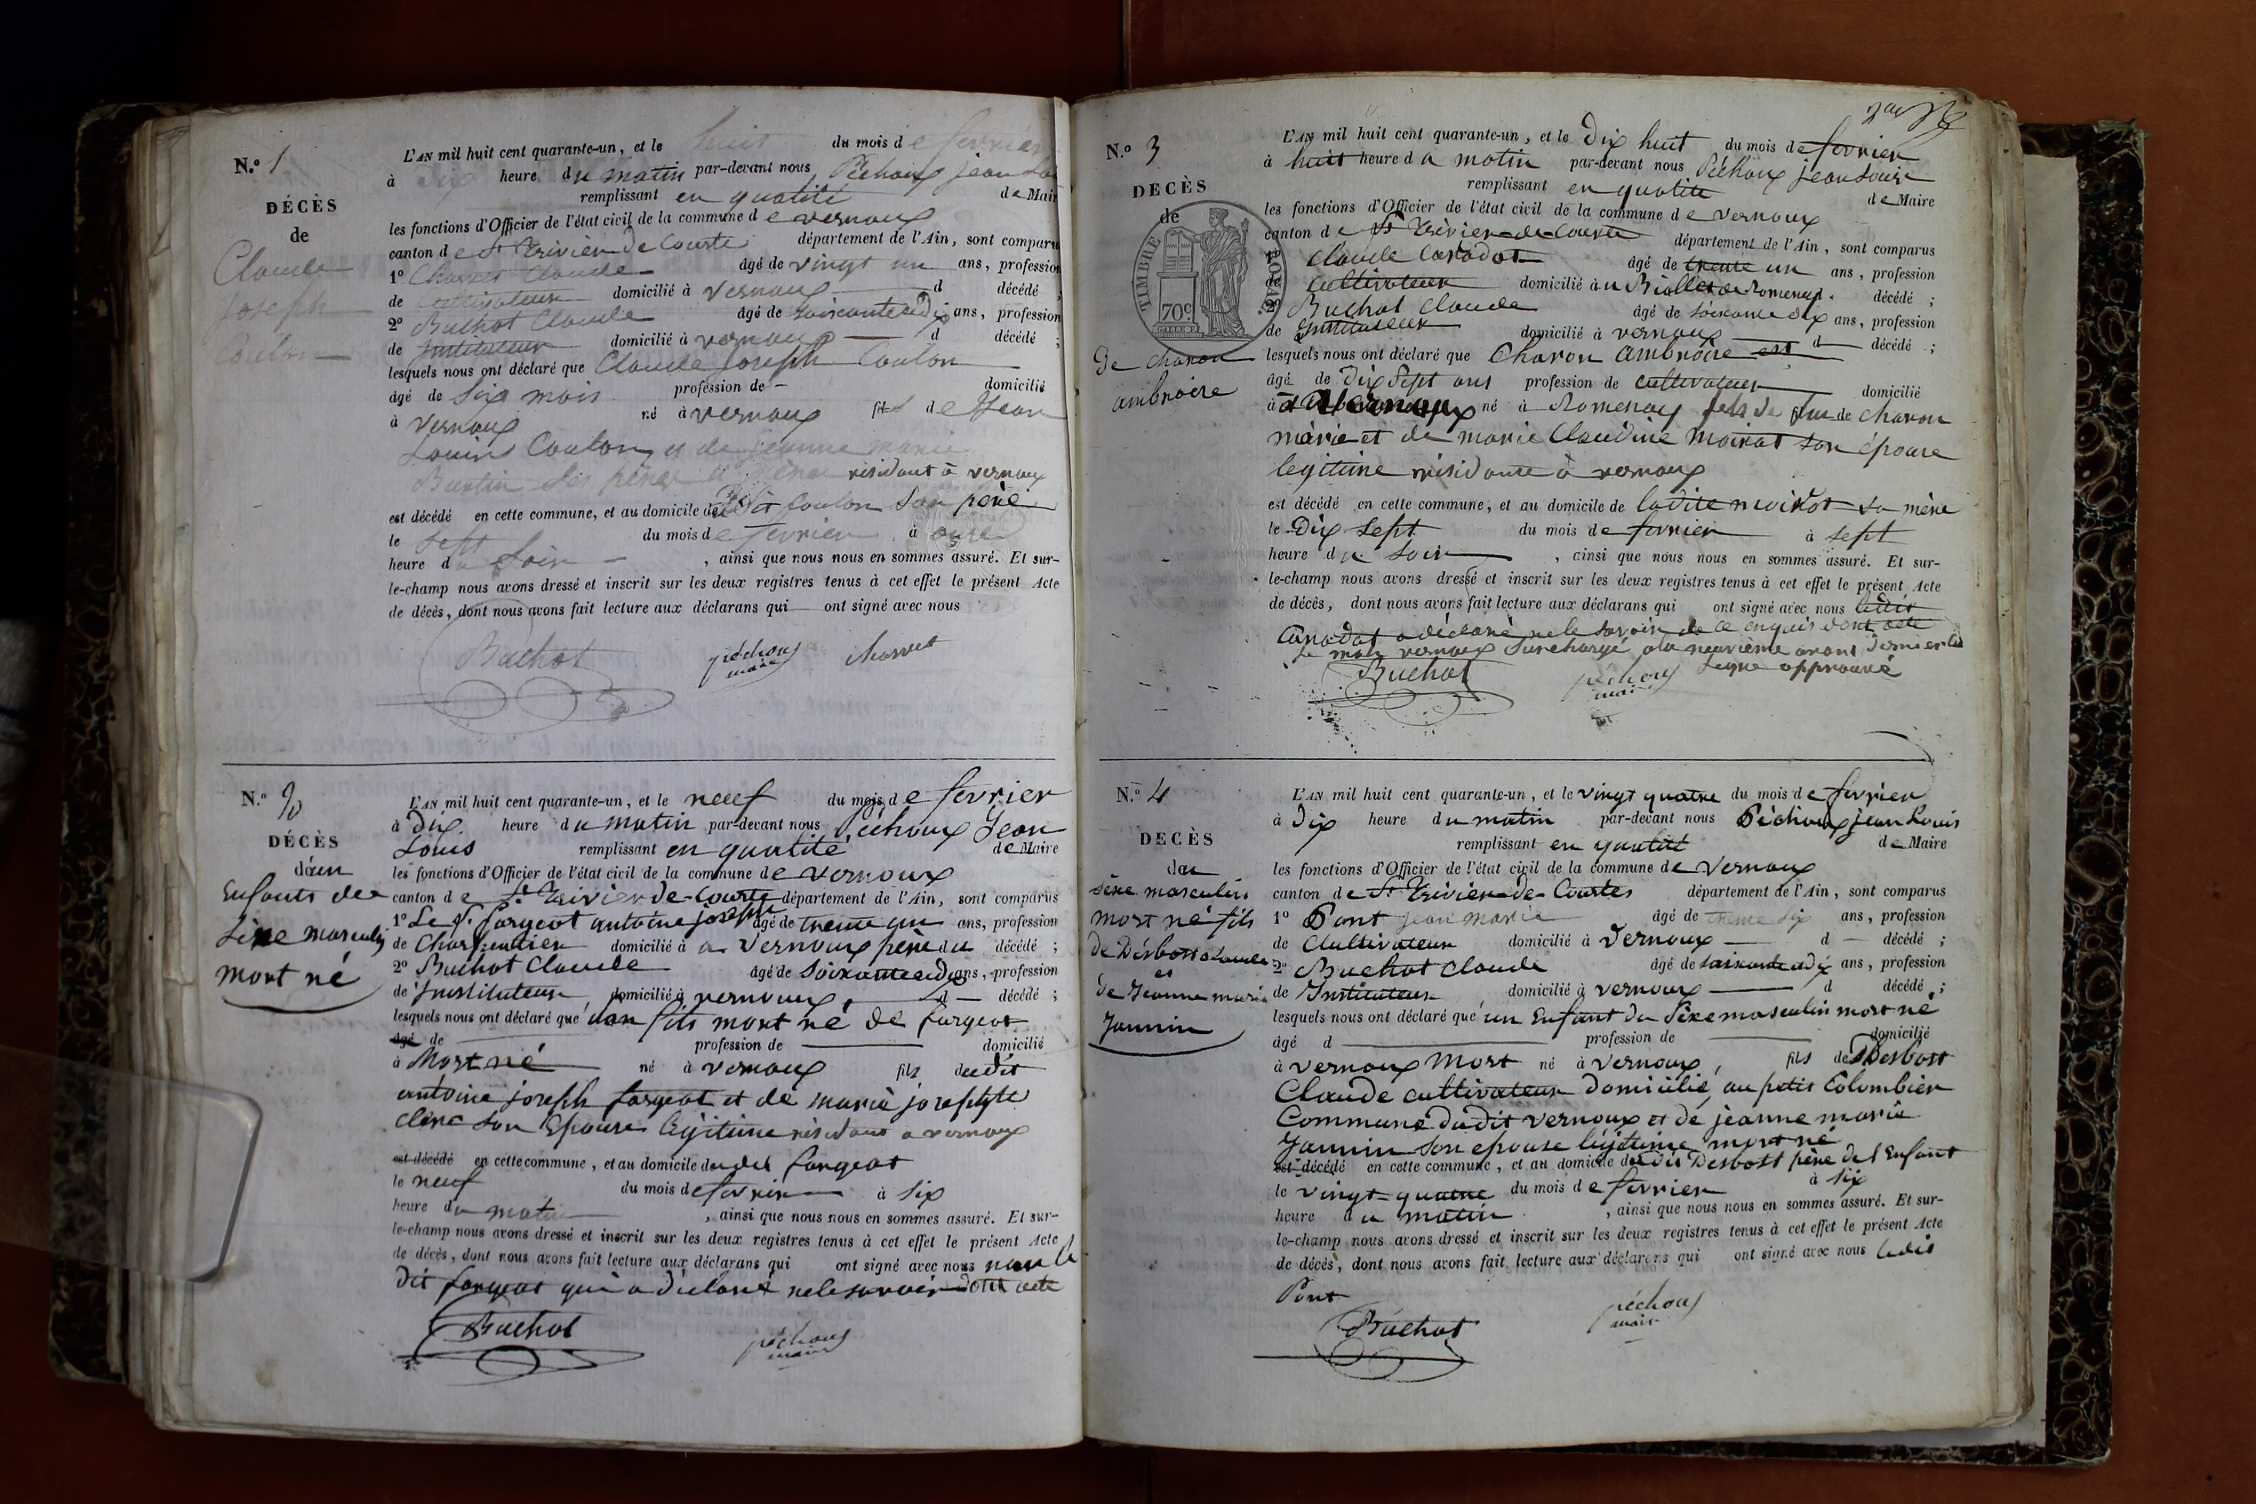 N.º 1
DÉCÈS
de
Claude
Joseph
Coulon
L'AN mil huit cent quarante-un, et le huit du mois de fevrier
à Dix heure du matin par-devant nous Péchoux jean Lou
remplissant en qualité de Maire
les fonctions d'Officier de l'état civil de la commune de vernoux
canton de St Trivier De Courte département de l'Ain, sont comparus
1º Charvet Claude âgé de vingt un ans, profession
de Cultivateur domicilié à vernoux d décédé ;
2º Buchot Claude âgé de soixante dix ans, profession
de Instituteur domicilié à vernoux d décédé ;
lesquels nous ont déclaré que Claude Joseph Coulon
âgé de Six mois profession de — domicilié
à vernoux né à vernoux fils de Jean
Louis Coulon et de jeanne marie
Buntin Ses père et mère résidant à vernoux
est décédé en cette commune, et au domicile dudit Coulon Son père
le Sept du mois de fevrier à onze
heure du Soir , ainsi que nous nous en sommes assuré. Et sur-
le-champ nous avons dressé et inscrit sur les deux registres tenus à cet effet le présent Acte
de décès, dont nous avons fait lecture aux déclarans qui ont signé avec nous
Buchot péchoux maire Charvet
N.º 2
DÉCÈS
d'un
Enfants de
Sixe masculin
mort né
L'AN mil huit cent quarante-un, et le neuf du mois de fevrier
à Dix heure du matin par-devant nous Péchoux Jean
Louis remplissant en qualité de Maire
les fonctions d'Officier de l'état civil de la commune de vernoux
canton de St Trivier de Courte département de l'Ain, sont comparus
1º Le Sr. fargeot antoine joseph âgé de trente un ans, profession
de Charpentier domicilié à a vernoux père du décédé ;
2º Buchot Claude âgé de Soixante dix ans, profession
de Instituteur domicilié à vernoux, d — décédé ;
lesquels nous ont déclaré que un fils mort né de fargeot
âgé de profession de domicilié
à Mort né né à vernoux fils dudit
antoine joseph fargeot et de marie josephte
Clerc son Epouse légitime résidant a vernoux
est décédé en cette commune, et au domicile dudit fargeot
le neuf du mois de fevrier à Six
heure du matin , ainsi que nous nous en sommes assuré. Et sur-
le-champ nous avons dressé et inscrit sur les deux registres tenus à cet effet le présent Acte
de décès, dont nous avons fait lecture aux déclarans qui ont signé avec nous non le
Dit fargeot qui a déclaré ne le savoir dont acte
Buchot péchoux maire
N.º 3
DECÈS
de
TIMBRE ROYAL
70c
De Charon
ambroise
L'AN mil huit cent quarante-un, et le Dix huit du mois de fevrier
à huit heure du matin par-devant nous Péchoux jean Louis
remplissant en qualité de Maire
les fonctions d'Officier de l'état civil de la commune de vernoux
canton de St Trivier-de-Courte département de l'Ain, sont comparus
1º Claude Canadot âgé de trente un ans, profession
de Cultivateur domicilié à de Romenay. décédé ;
2º Buchot Claude âgé de Soixante dix ans, profession
de Instituteur domicilié à vernoux d décédé ;
lesquels nous ont déclaré que Charon Ambroise est
âgé de dix Sept ans profession de Cultivateur domicilié
à Vernoux né à Romenay fils de feu de Charon
marie et de marie Claudine moirot son épouse
legitime résidante à vernoux
est décédé en cette commune, et au domicile de ladite moirot sa mère
le Dix Sept du mois de fevrier à sept
heure du Soir , ainsi que nous nous en sommes assuré. Et sur-
le-champ nous avons dressé et inscrit sur les deux registres tenus à cet effet le présent Acte
de décès, dont nous avons fait lecture aux déclarans qui ont signé avec nous ledit
Canadot a déclaré ne le savoir de ce enquis dont acte
le mot vernoux Surchargé a la neuvième avant Dernier
ligne approuvé
Buchot péchoux maire
N.º 4
DECÈS
du
séxe masculin
mort né fils
de Desbost Claude
et
de Jeanne marie
Jannin
L'AN mil huit cent quarante-un, et le vingt quatre du mois de fevrier
à Dix heure du matin par-devant nous Péchoux jean Louis
remplissant en qualité de Maire
les fonctions d'Officier de l'état civil de la commune de Vernoux
canton de St Trivier-de-Courtes département de l'Ain, sont comparus
1º Pont jean marie âgé de trente Six ans, profession
de Cultivateur domicilié à vernoux — d — décédé ;
2º Buchot Claude âgé de soixante dix ans, profession
de Instituteur domicilié à vernoux d décédé ;
lesquels nous ont déclaré que un Enfant du Séxe masculin mort né
âgé d profession de domicilié
à vernoux mort né à vernoux, fils de Desbost
Claude cultivateur domicilié, au petit Colombier
Commune dudit vernoux et de jeanne marie
Jannin son epouse légitime mort né
est décédé en cette commune, et au domicile dudit Desbost père de l'Enfant
le vingt quatre du mois de fevrier à six
heure du matin , ainsi que nous nous en sommes assuré. Et sur-
le-champ nous avons dressé et inscrit sur les deux registres tenus à cet effet le présent Acte
de décès, dont nous avons fait lecture aux déclarans qui ont signé avec nous ledit
Pont
Buchot péchoux maire